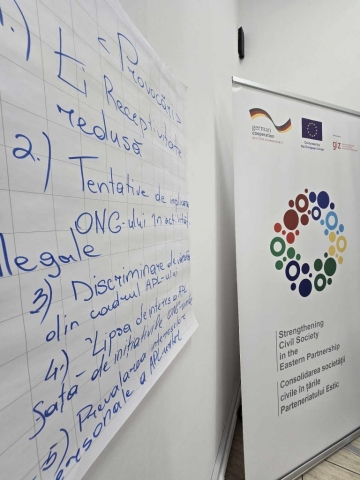 < Provocări >
1.)
Receptivitate
redusă
2.) Tentative de implicare
ONG-ului în activități
legale
3) Discriminare de vârstă
din cadrul APL-ului
4.) - Lipsa de interes a APL
față de inițiativele
5) Prevalarea intereselor
personale a APL
german
cooperation
giz
Strengthening
Civil Society
in the
Eastern Partnership
Consolidarea societății
civile în țările
Parteneriatului Estic